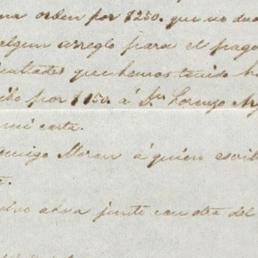 na orden por $250. que no dud
algun arreglo para el pago
cultades que hemos tenido h
ibo por $150. á Dn Lorenzo
mi carta.
amigo Moran á quien escrib
junto con otra del